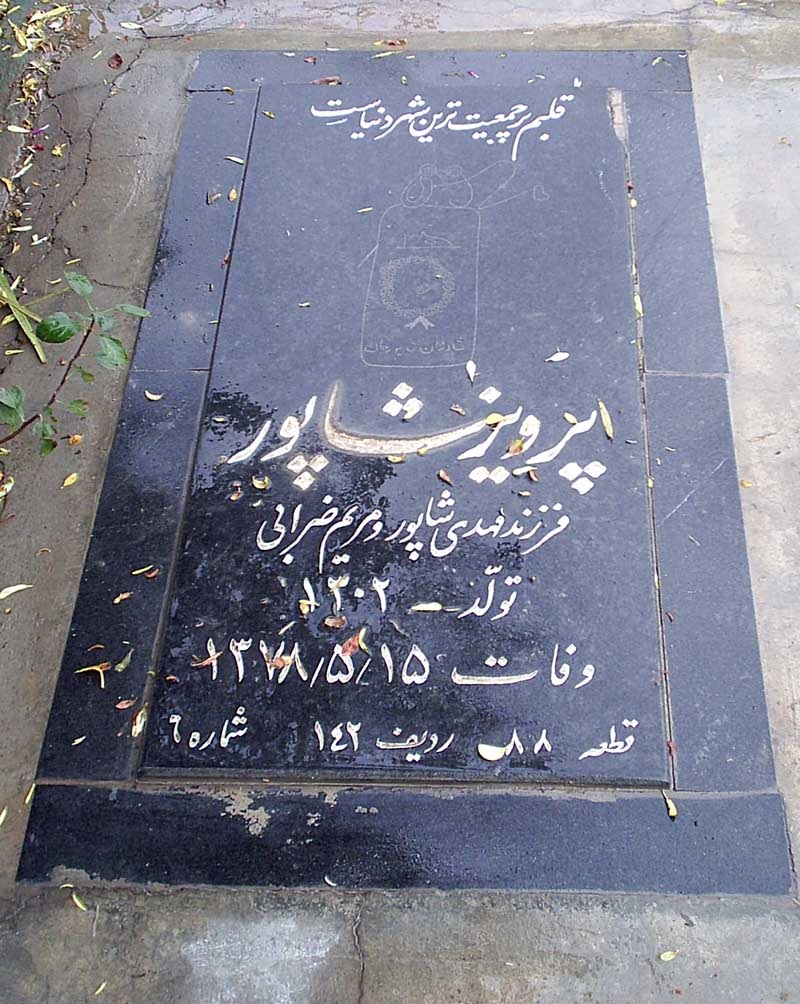 قلبم پرجمعیت ترین شهر دنیاست
پرویز شاپور
فرزند مهدی شاپور و مریم ضرابی
تولّد – ۱۳۰۲
وفات ۱۳۷۸/۵/۱۵
قطعه ۸۸ ردیف ۱۴۲ شماره ۶